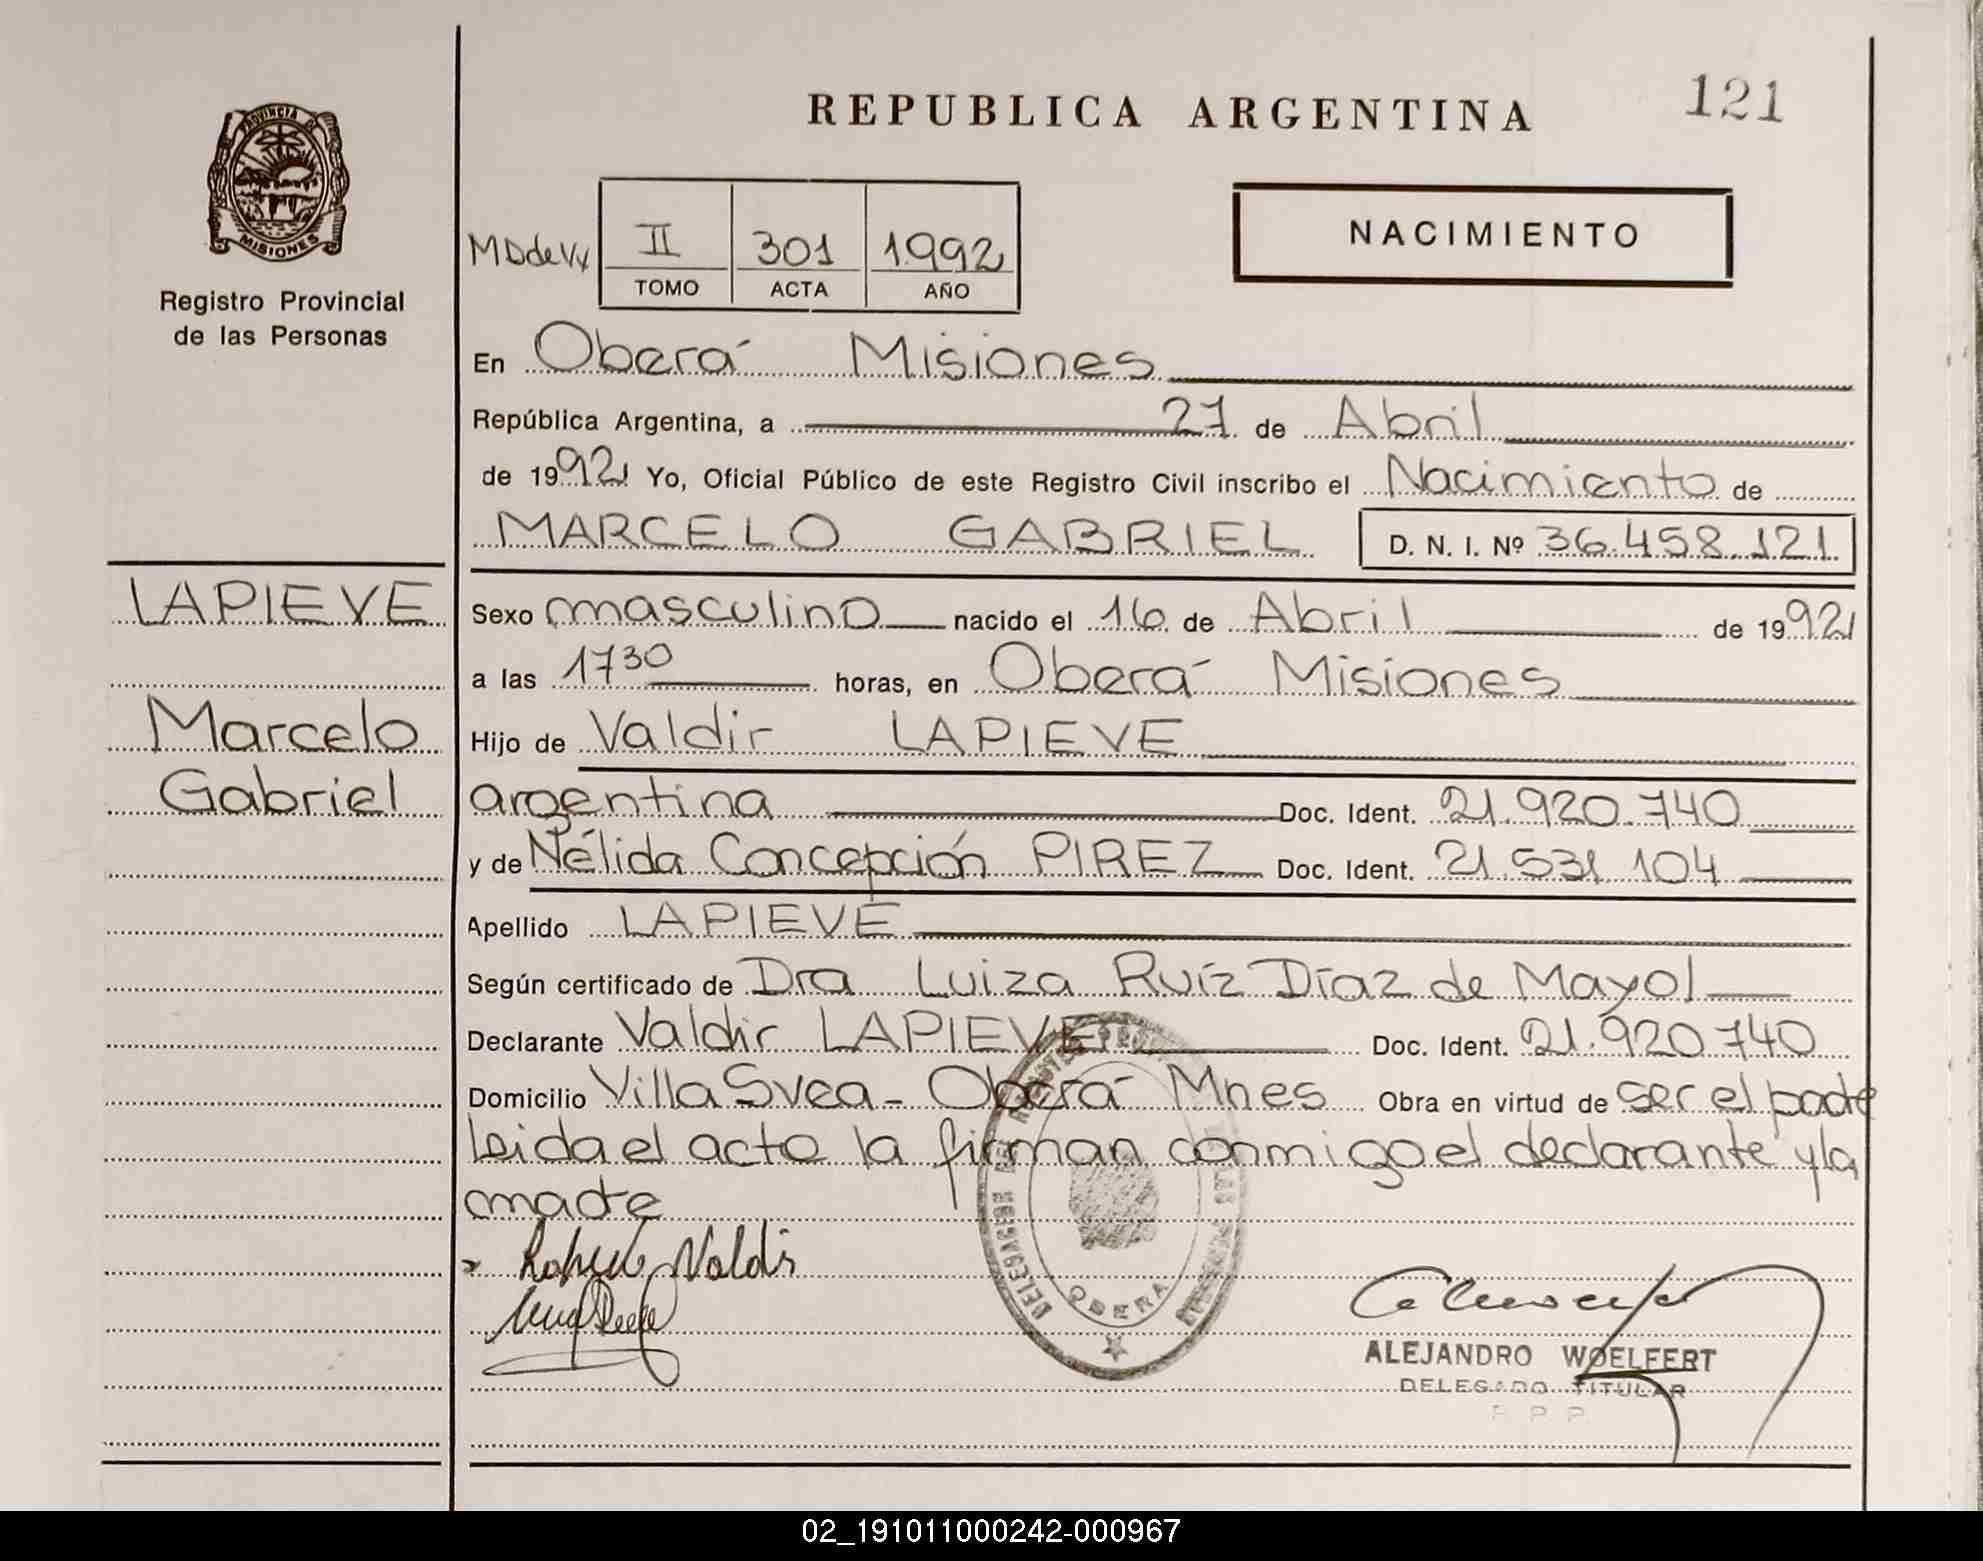 REPUBLICA ARGENTINA
121
PROVINCIA DE
MISIONES
Registro Provincial
de las Personas
II 301 1992
TOMO ACTA AÑO
NACIMIENTO
En Oberá Misiones
República Argentina, a 27 de Abril
de 1992 Yo, Oficial Público de este Registro Civil inscribo el Nacimiento de
MARCELO GABRIEL D. N. I. Nº 36.458.121
LAPIEVE
Marcelo
Gabriel
Sexo masculino nacido el 16 de Abril de 1992
a las 1730 horas, en Oberá Misiones
Hijo de Valdir LAPIEVE
argentina Doc. Ident. 21.920.740
y de Nélida Concepción PIREZ Doc. Ident. 21.531.104
Apellido LAPIEVE
Según certificado de Dra Luiza Ruíz Díaz de Mayol
Declarante Valdir LAPIEVE Doc. Ident. 21.920.740
Domicilio Villa Svea - Oberá Mnes Obra en virtud de ser el padre
Leida el acto la firman conmigo el declarante y la
madre
Valdir
OBERA
ALEJANDRO WOELFERT
DELEGADO TITULAR
R P P
02_191011000242-000967